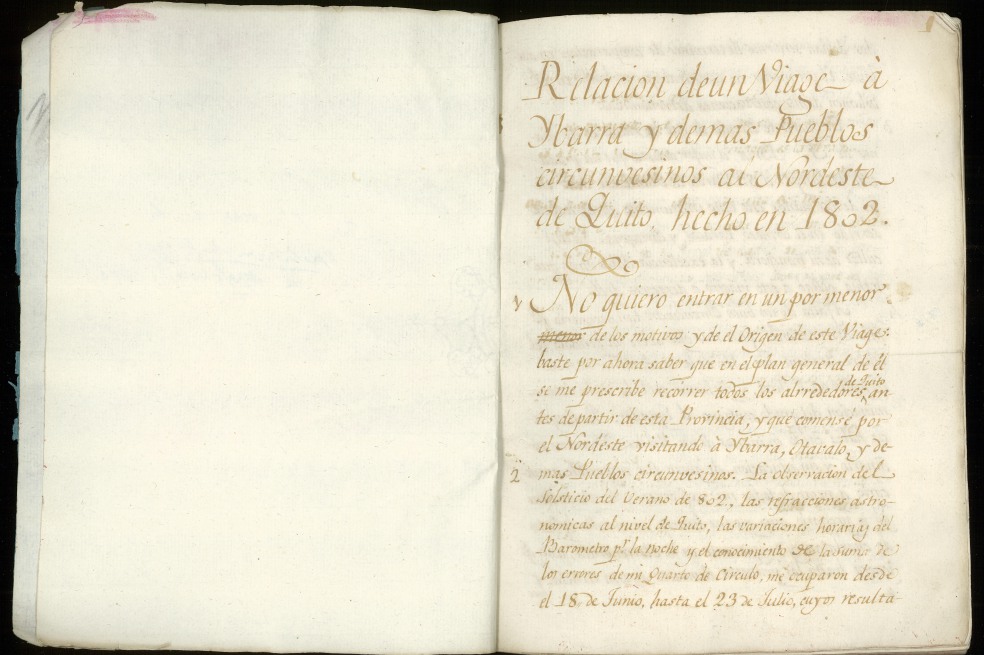 Relacion de un Viage à
Ybarra y demas Pueblos
circunvesinos al Nordeste
de Quito, hecho en 1802.
1 No quiero entrar en un por menor
menor de los motivos y de el Origen de este Viage:
baste por ahora saber que en el plan general de él
se me prescribe recorrer todos los alrrededores de Quito, an
tes de partir de esta Provincia, y que comensé por
el Nordeste visitando à Ybarra, Otavalo, y de-
2 mas Pueblos circunvesinos. La observacion del
Solsticio del Verano de 802., las refracciones astro-
nomicas al nivel de Quito, las variaciones horarias del
Barometro pr. la noche y el conocimiento de la suma de
los errores de mi Quarto de Circulo, me ocuparon desde
el 18 de Junio, hasta el 23 de Julio, cuyos resulta-